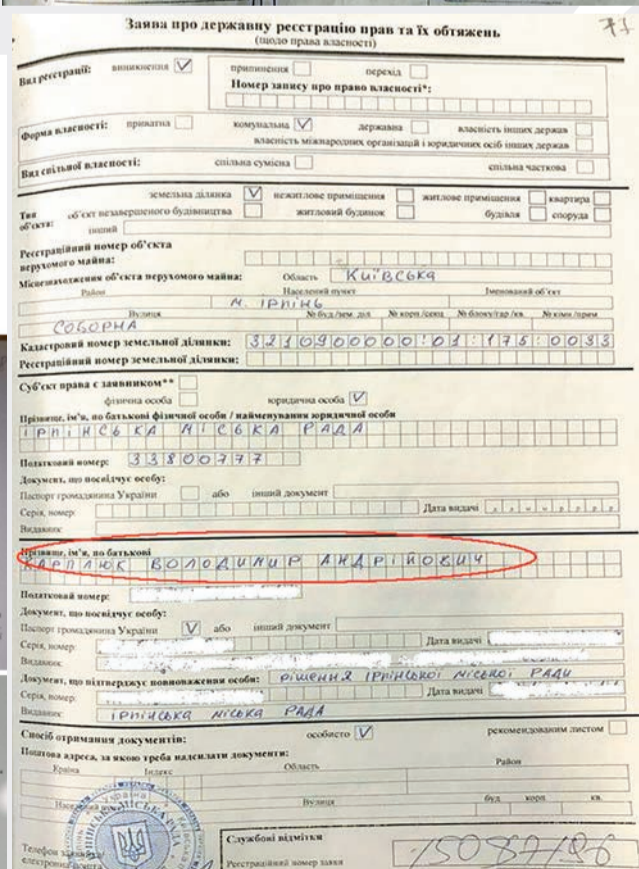 Заява про державну реєстрацію прав та їх обтяжень
(щодо права власності)
Вид реєстрації: виникнення V припинення перехід
Номер запису про право власності*:
Форма власності: приватна комунальна V державна власність інших держав
власність міжнародних організацій і юридичних осіб інших держав
Вид спільної власності: спільна сумісна спільна часткова
Тип об'єкта:
земельна ділянка V нежитлове приміщення житлове приміщення квартира
об'єкт незавершеного будівництва житловий будинок будівля споруда
інший
Реєстраційний номер об'єкта
нерухомого майна:
Місцезнаходження об'єкта нерухомого майна: Область КИЇВСЬКА
Район Населений пункт Іменований об'єкт
М. ІРПІНЬ
Вулиця № буд./зем. діл. № корп./секц. № блоку/гар./кв. № кімн./прим.
СОБОРНА
Кадастровий номер земельної ділянки: 3210900000:01:175:0033
Реєстраційний номер земельної ділянки:
Суб'єкт права є заявником**
фізична особа юридична особа V
Прізвище, ім'я, по батькові фізичної особи / найменування юридичної особи
ІРПІНСЬКА МІСЬКА РАДА
Податковий номер: 33800777
Документ, що посвідчує особу:
Паспорт громадянина України або інший документ
Серія, номер: Дата видачі
Видавник:
Прізвище, ім'я, по батькові
КАРПЛЮК ВОЛОДИМИР АНДРІЙОВИЧ
Податковий номер:
Документ, що посвідчує особу:
Паспорт громадянина України V або інший документ
Серія, номер: Дата видачі
Видавник:
Документ, що підтверджує повноваження особи: РІШЕННЯ ІРПІНСЬКОЇ МІСЬКОЇ РАДИ
Серія, номер: Дата видачі
Видавник: ІРПІНСЬКА МІСЬКА РАДА
Спосіб отримання документів: особисто V рекомендованим листом
Поштова адреса, за якою треба надсилати документи:
Країна Індекс Область Район
Вулиця буд. корп. кв.
Телефон
електронна пошта
Службові відмітки
Реєстраційний номер заяви 15087196